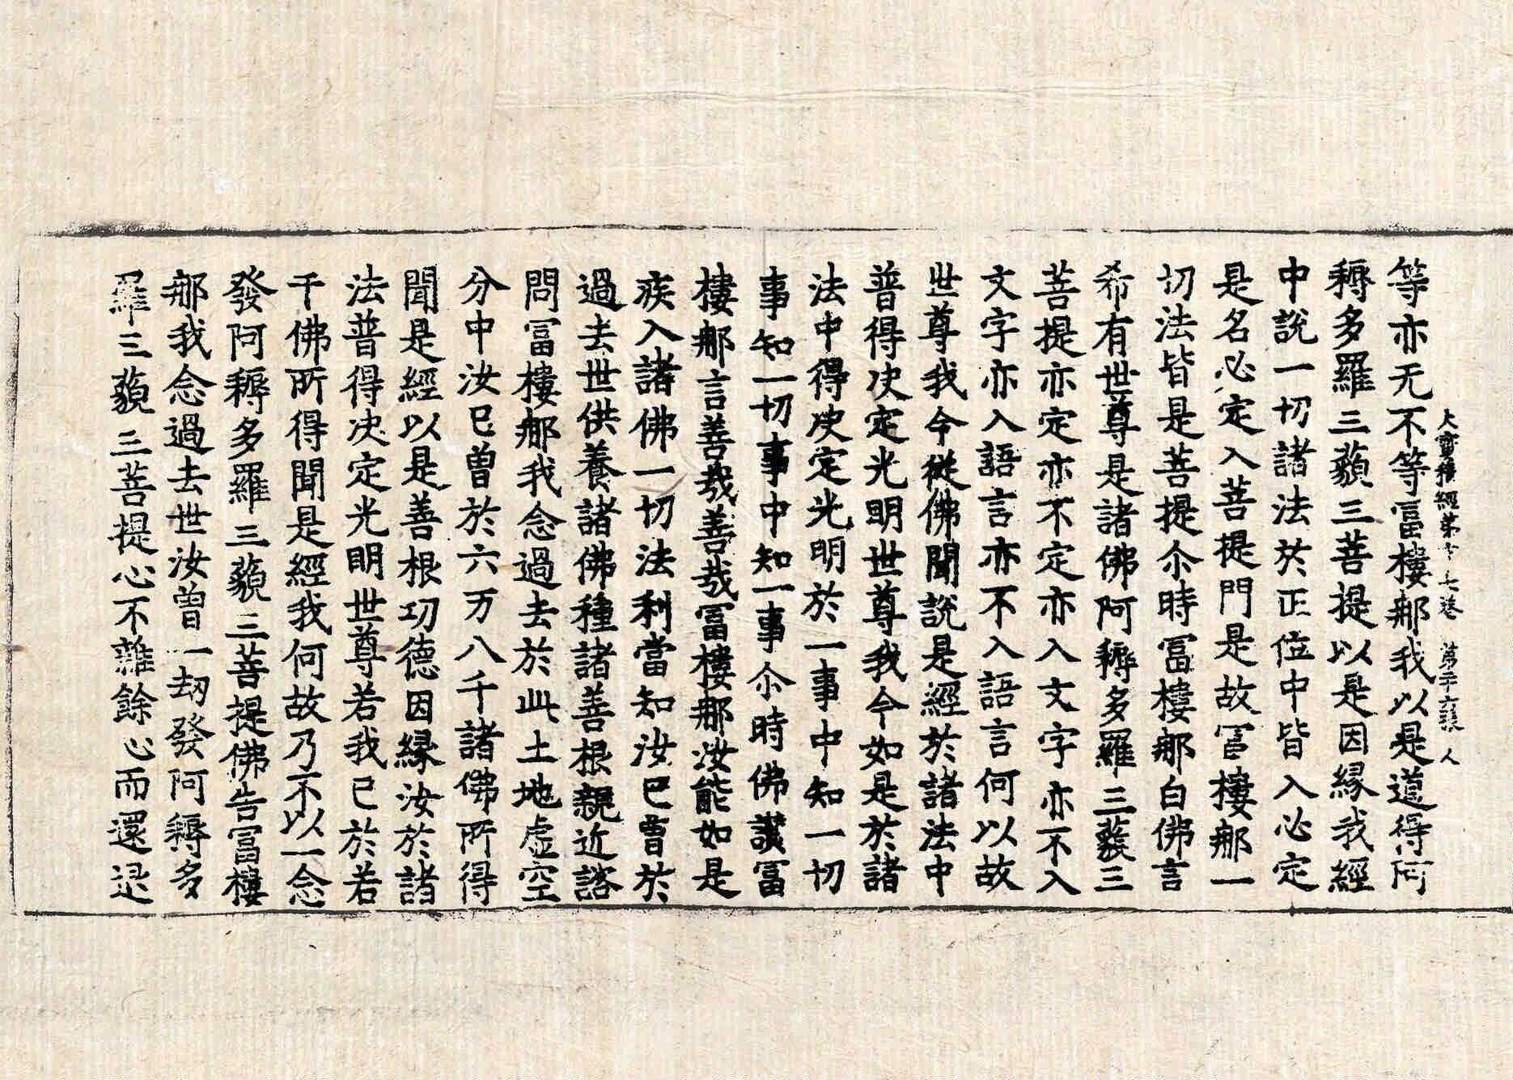 大寶積經第十七卷 第 六張 人
等亦无不等冨樓那我以是道得阿
耨多羅三藐三菩提以是因緣我經
中說一切諸法於正位中皆入必定
是名必定入菩提門是故冨樓那一
切法皆是菩提尒時冨樓那白佛言
希有世尊是諸佛阿耨多羅三藐三
菩提亦定亦不定亦入文字亦不入
文字亦入語言亦不入語言何以故
世尊我今從佛聞說是經於諸法中
普得决定光明世尊我今如是於諸
法中得决定光明於一事中知一切
事知一切事中知一事尒時佛讃冨
樓那言善哉善哉冨樓那汝能如是
疾入諸佛一切法利當知汝已曾於
過去世供養諸佛種諸善根親近諮
問冨樓那我念過去於此土地虛空
分中汝已曾於六万八千諸佛所得
聞是經以是善根功德因緣汝於諸
法普得决定光明世尊若我已於若
千佛所得聞是經我何故乃不以一念
發阿耨多羅三藐三菩提佛告冨樓
那我念過去世汝曾一劫發阿耨多
羅三藐三菩提心不雜餘心而還退